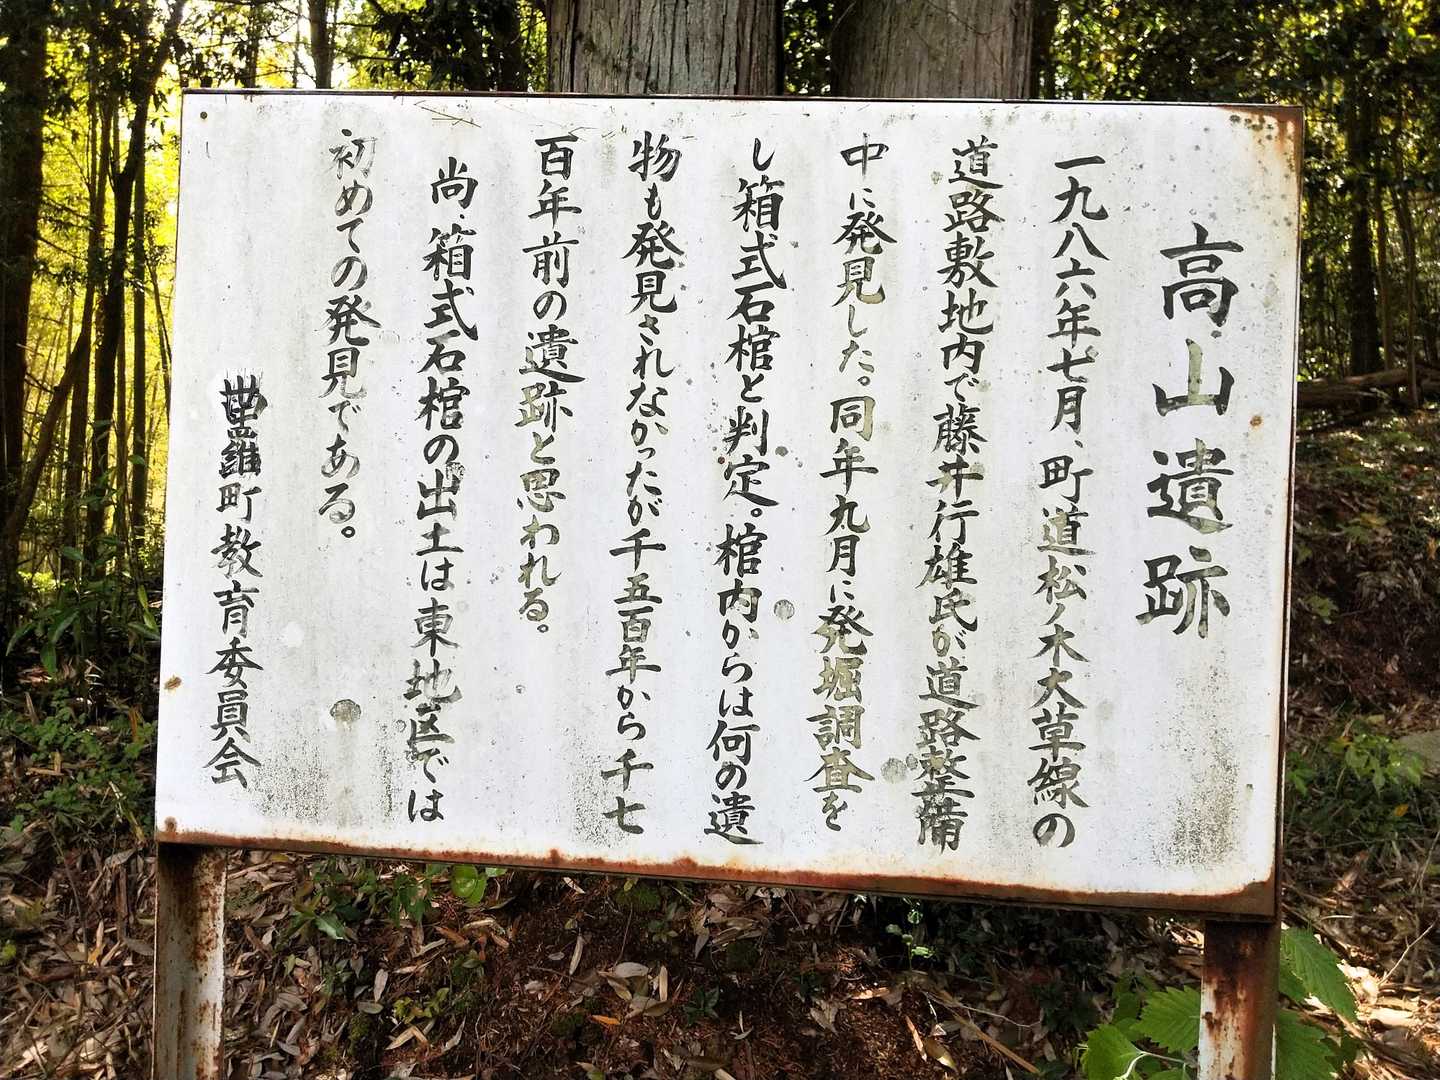 高山遺跡
一九八六年七月、町道松ノ木大草線の
道路敷地内で藤井行雄氏が道路整備
中に発見した。同年九月に発堀調査を
し箱式石棺と判定。棺内からは何の遺
物も発見されなかったが千五百年から千七
百年前の遺跡と思われる。
尚、箱式石棺の出土は東地区では
初めての発見である。
世羅町教育委員会